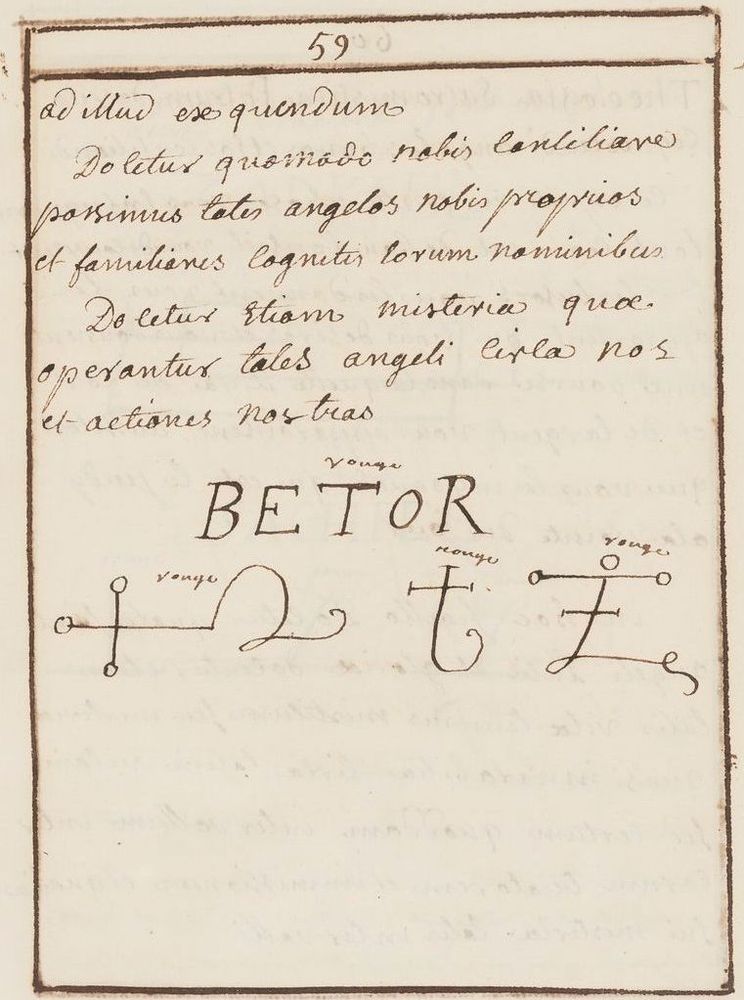 59
ad illud exequendum
Docetur quomodo nobis conciliare
possimus tales angelos nobis proprios
et familiares cognitis eorum nominibus
Docetur etiam misteria quæ
operantur tales angeli circa nos
et actiones nostras
rouge
BETOR
rouge
rouge
rouge